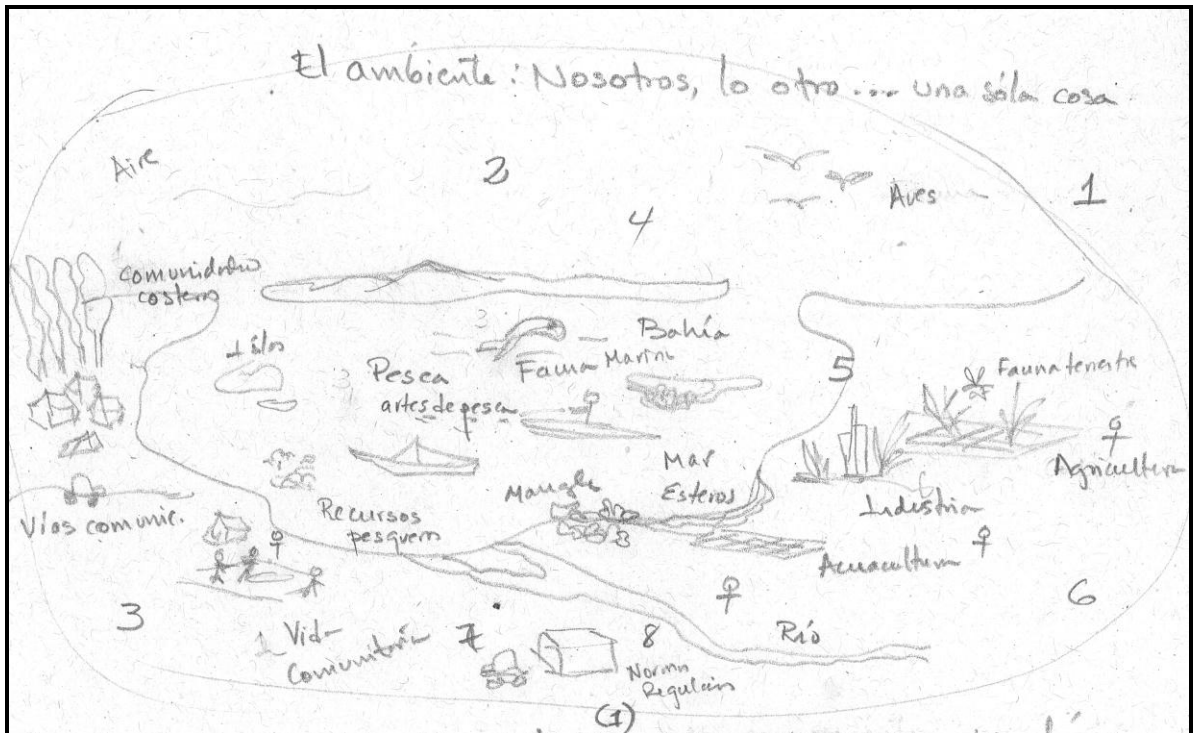 El ambiente: Nosotros, lo otro... una sóla cosa
Aire
2
Aves
1
4
comunidades
costeras
Islas
3
Bahía
Fauna Marina
5
Pesca
artes de pesca
Fauna terrestre
Mar
Esteros
Agricultura
Mangles
Industria
Vías comunic.
Recursos
pesqueros
Acuacultura
3
6
1 Vida
Comunitaria
7
8
Río
Norma
(1)